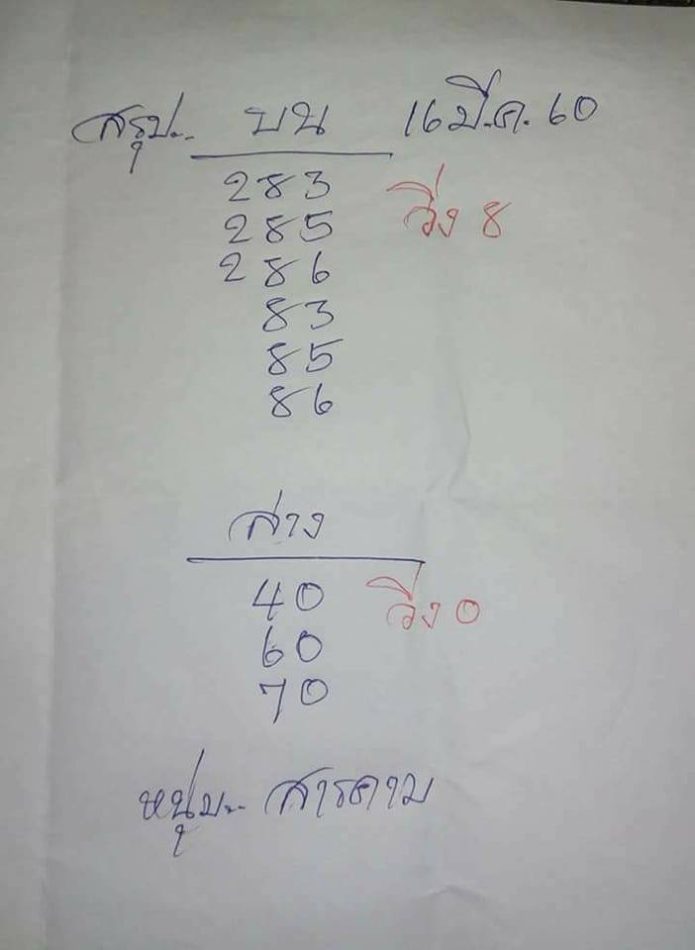 สรุป.. บน 16 มี.ค. 60
283
285 วิ่ง 8
286
83
85
86
ล่าง
40 วิ่ง 0
60
70
หนุ่ม.. สารคาม